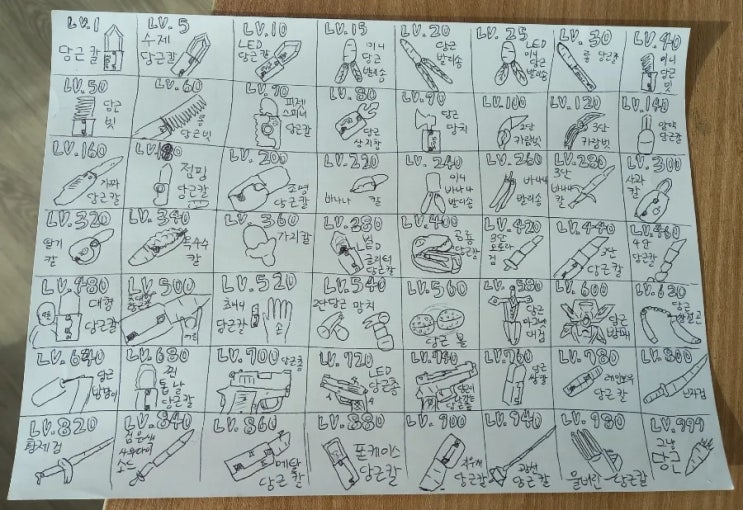 LV.1
당근칼
LV.5
수제
당근칼
LV.10
LED
당근칼
LV.15
미니
당근
발리송
LV.20
당근
발리송
LV.25
LED
미니
당근
발리송
LV.30
롱 당근칼
LV.40
미니
당근
빗
LV.50
당근
빗
LV.60
롱
당근빗
LV.70
피젯
스피너
당근칼
LV.80
당근
삼지창
LV.90
당근
망치
LV.100
2단
카람빗
LV.120
3단
카람빗
LV.140
알약
당근칼
LV.160
가짜
당근칼
LV.180
점핑
당근칼
LV.200
조명
당근칼
LV.220
바나나 칼
LV.240
미니
바나나
발리송
LV.260
바나나
발리송
LV.280
3단
바나나
칼
LV.300
사과
칼
LV.320
딸기
칼
LV.340
옥수수
칼
LV.360
가지칼
LV.380
LED
글리터
당근칼
LV.400
공룡
당근칼
LV.420
3단
오토마
검
LV.440
3단
당근칼
LV.460
4단
당근칼
LV.480
대형
당근칼
LV.500
초대형
당근칼
LV.520
초미니
당근칼
손
LV.540
2단당근 망치
LV.560
당근 볼
LV.580
당근
마그넷
대검
LV.600
당근
LV.620
당근
쌍절곤
LV.640
당근
LV.680
찐
톱날
당근칼
LV.700
당근총
LV.720
LED
당근총
LV.740
LV.760
당근
LV.780
레인보우
당근칼
LV.800
닌자검
LV.820
황제검
LV.840
검은색
사무라이
소드
LV.860
메탈
당근칼
LV.880
폰케이스
당근칼
LV.900
당근칼
LV.940
광선
당근칼
LV.980
울버린 당근칼
LV.999
그냥
당근